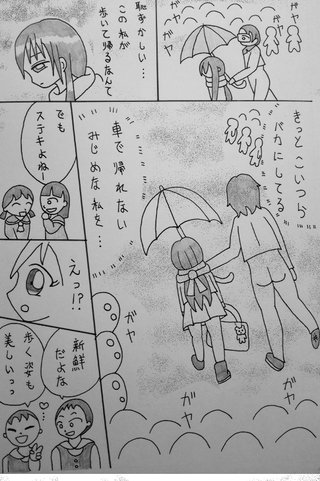 ガヤ
ガヤ
恥ずかしい…
この私が
歩いて帰るなんて
きっとこいつら
バカにしてる
車で帰れない
みじめな私を…
ガヤ
ガヤ
ガヤ
でも
ステキよねー
えっ!?
新鮮
だよな
歩く姿も
美しいっっ